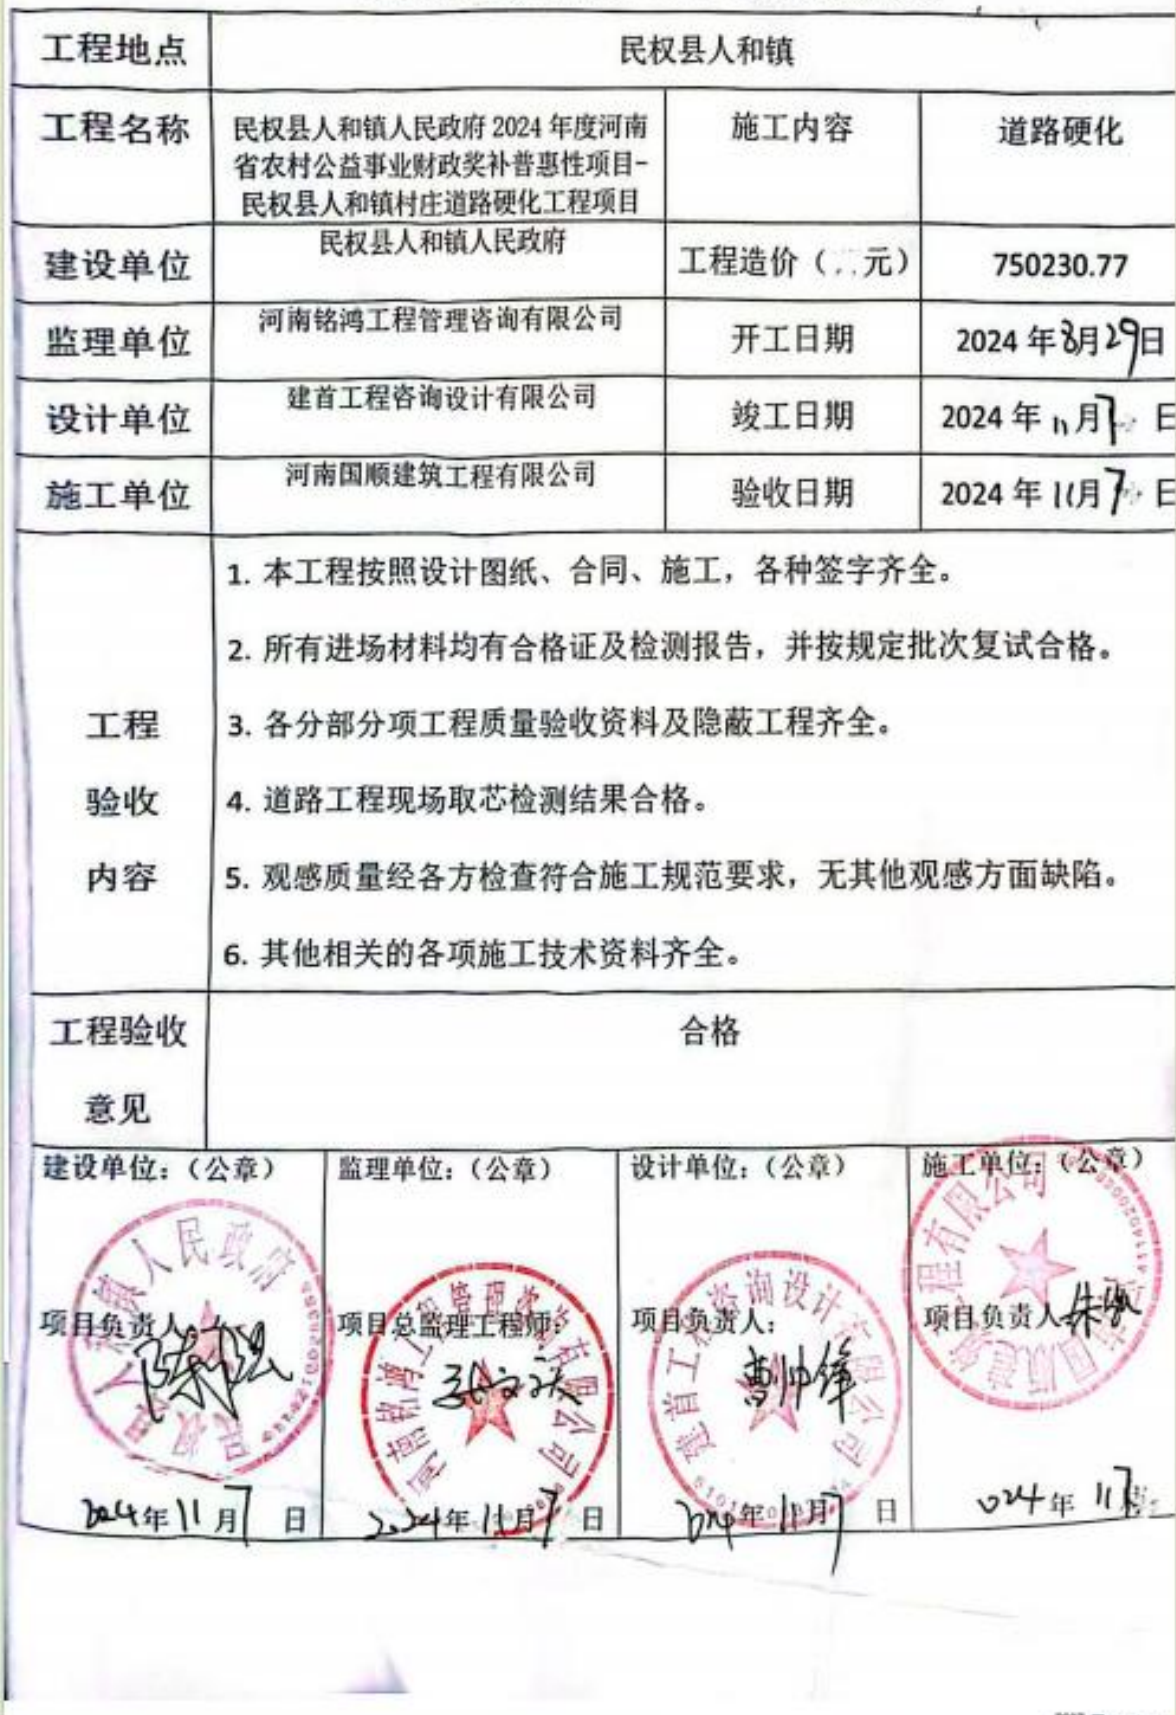 工程地点 民权县人和镇
工程名称 民权县人和镇人民政府 2024 年度河南 施工内容 道路硬化
省农村公益事业财政奖补普惠性项目-
民权县人和镇村庄道路硬化工程项目
建设单位 民权县人和镇人民政府 工程造价（元） 750230.77
监理单位 河南铭鸿工程管理咨询有限公司 开工日期 2024 年8月29日
设计单位 建首工程咨询设计有限公司 竣工日期 2024 年 11 月7 日
施工单位 河南国顺建筑工程有限公司 验收日期 2024 年 11月7 日
工程
验收
内容
1. 本工程按照设计图纸、合同、施工，各种签字齐全。
2. 所有进场材料均有合格证及检测报告，并按规定批次复试合格。
3. 各分部分项工程质量验收资料及隐蔽工程齐全。
4. 道路工程现场取芯检测结果合格。
5. 观感质量经各方检查符合施工规范要求，无其他观感方面缺陷。
6. 其他相关的各项施工技术资料齐全。
工程验收
意见
合格
建设单位：（公章） 监理单位：（公章） 设计单位：（公章） 施工单位：（公章）
项目负责人 项目总监理工程师： 项目负责人： 曹帅锋 项目负责人
2024年11月7日 2024年11月7日 2024年11月7日 024年 11 7